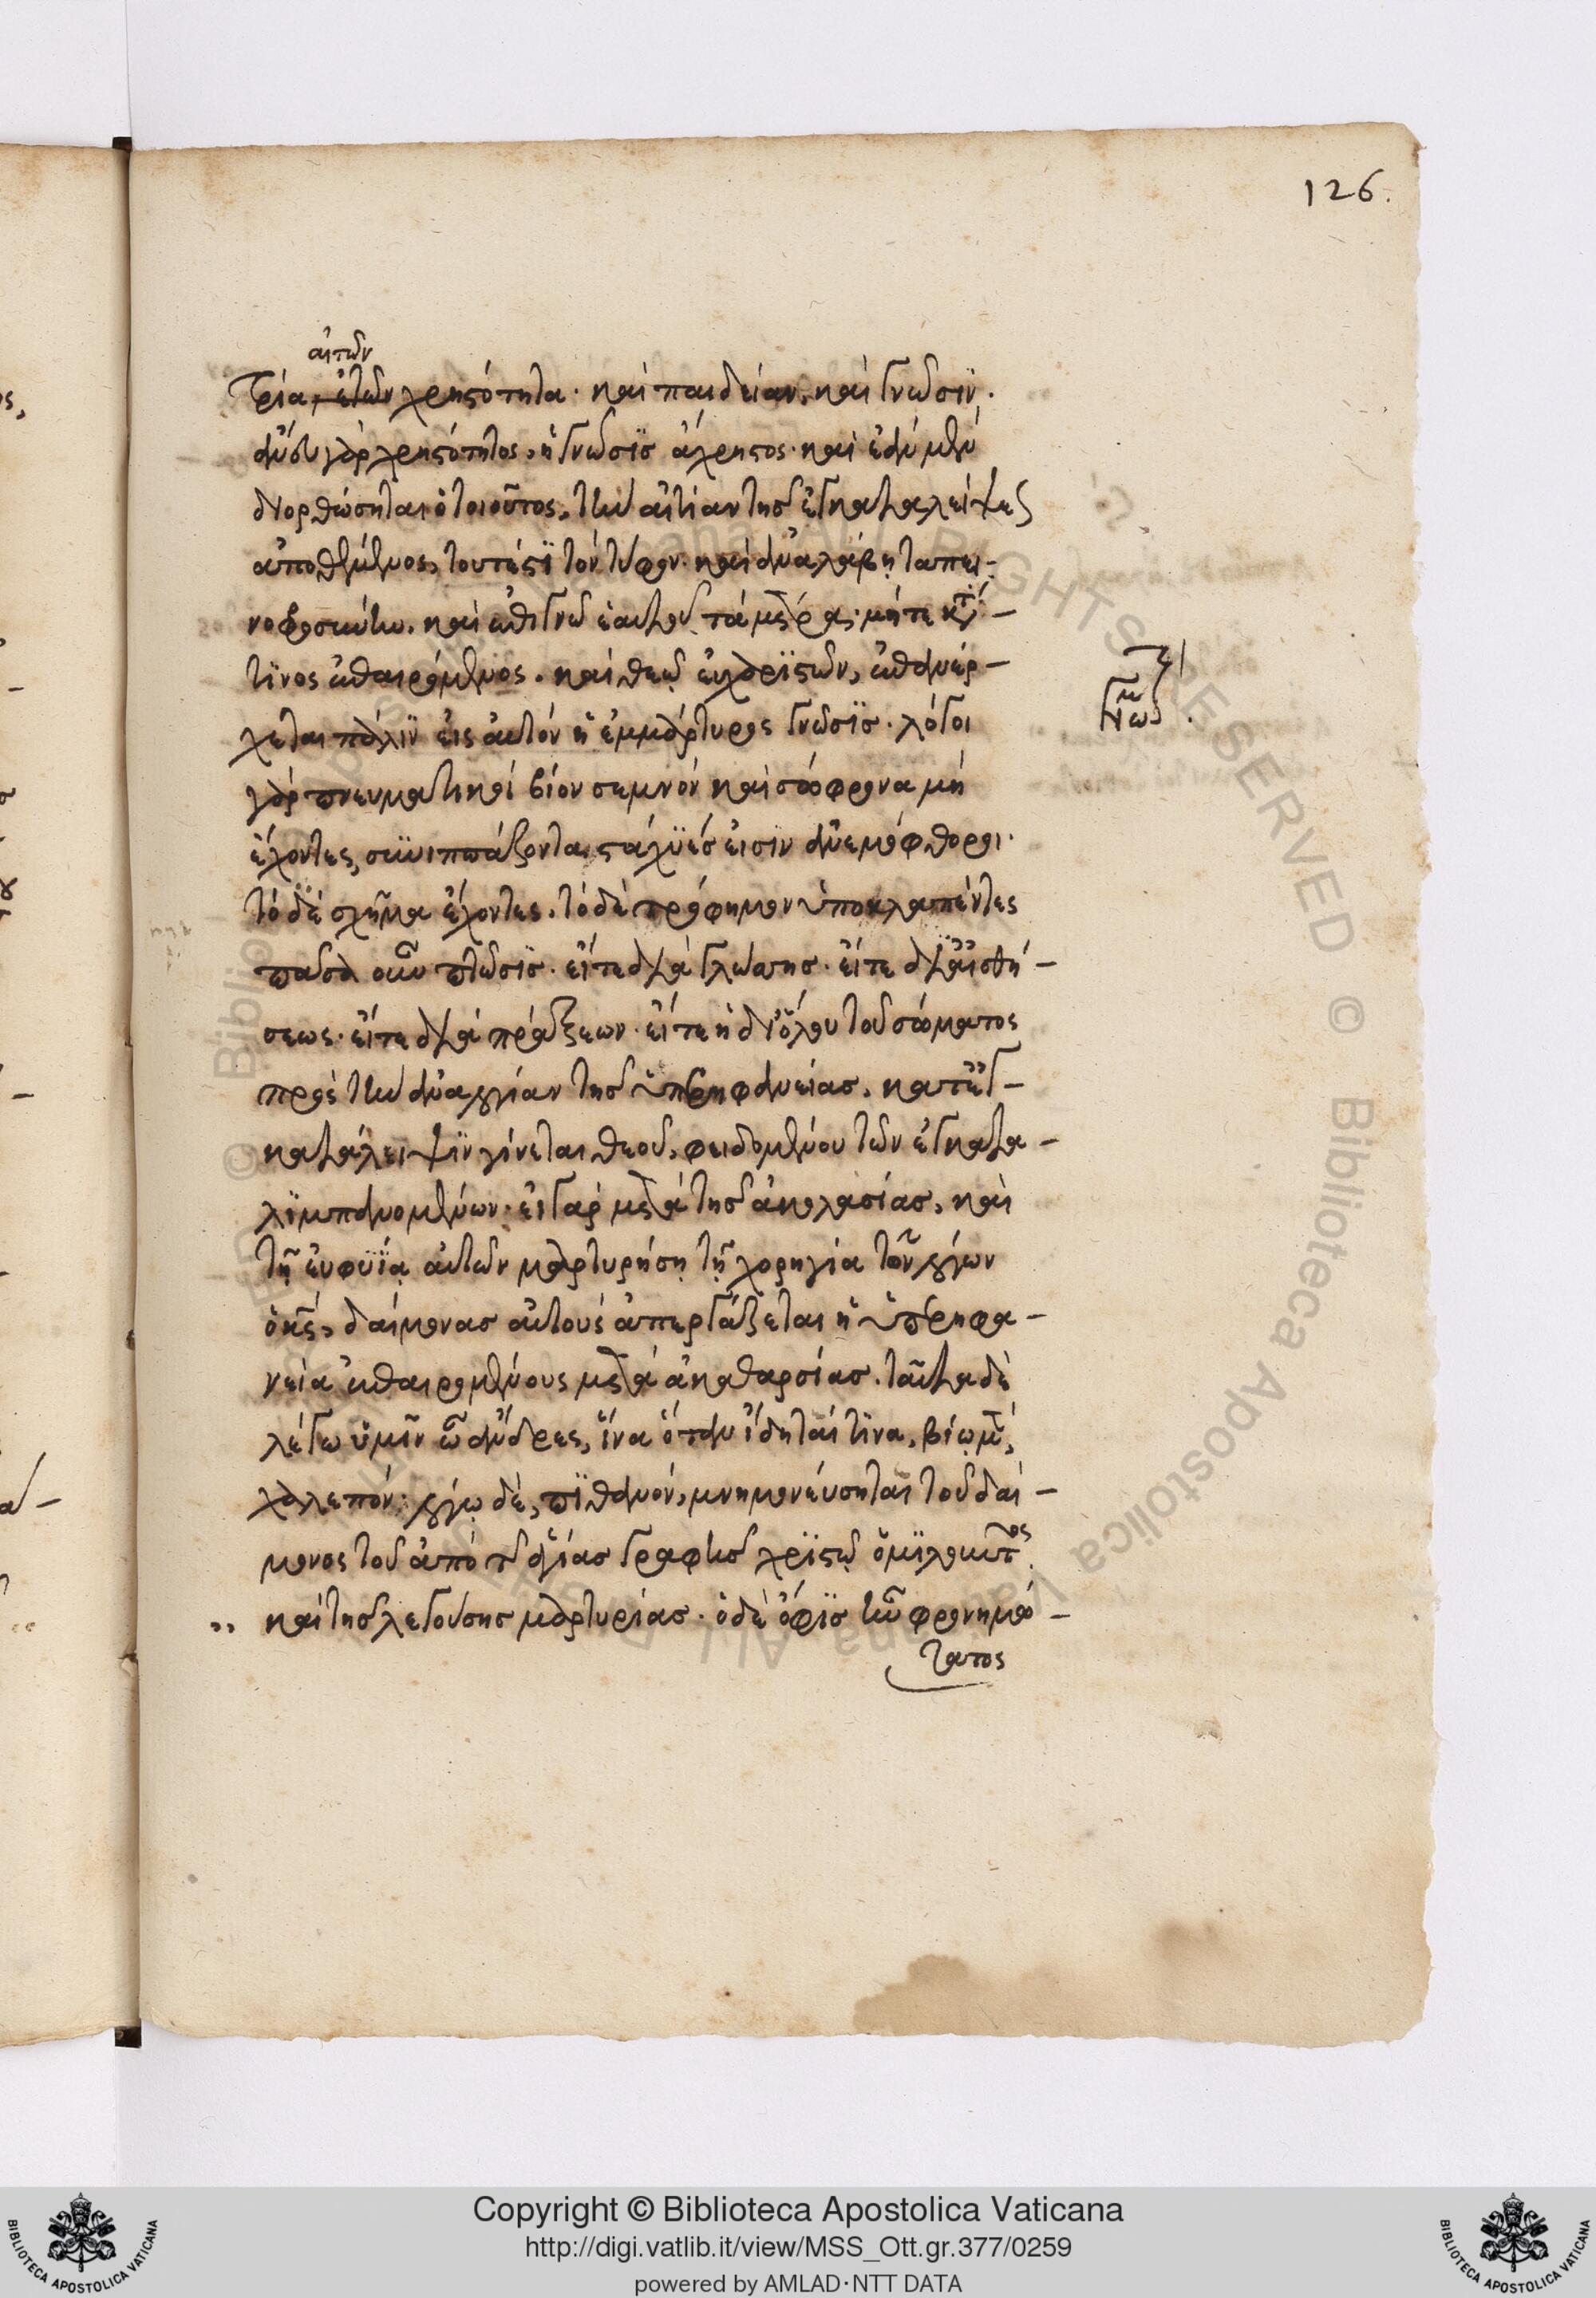 126.
αιτῶν
τρία, ἐτῶν χρηστότητα· καὶ παιδείαν, καὶ γνῶσϊν·
ἄνευ γὰρ χρηστότητος, ἡ γνῶσϊς ἄχρηστος· καὶ ἐὰν μὲν
διορθώσηται ὁ τοιοῦτος, τὴν αἰτίαν τῆς ἐγκαταλείψεως
ἀποθέμενος, τουτέστϊ τὸν τύφον· καὶ ἀναλάβῃ ταπει-
νοφροσύνην. καὶ ἐπιγνῶ ἑαυτοῦ τὰ μέτρα· μήτε κατά-
τϊνος ἐπαιρόμενος. καὶ θεῷ εὐχαρϊστῶν, ἐπανέρ-
χεται πάλϊν εἰς αὐτὸν ἡ ἐμμάρτυρος γνῶσϊς· λόγοι
γὰρ πνευματικοὶ βίον σεμνὸν καὶ σώφρονα μὴ
ἔχοντες, στάχϋές εἰσϊν ἀνεμόφθοροι·
τὸ δὲ σχῆμα ἔχοντες. τὸ δὲ τρόφημον ὑποκλαπέντες
πᾶσα οὖν πτῶσϊς· εἴτε διὰ γλώττης· εἴτε δι αἰσθή-
σεως· εἴτε διὰ πράξεων· εἴτε ἡ δι' ὅλου τοῦ σώματος
πρὸς τὴν ἀναλογίαν τῆς ὑπερηφανείας. κατ' ἐγ-
κατάλειψϊν γίνεται θεοῦ, φειδομένου τῶν ἐγκατα-
λϊμπανομένων· εἰ γὰρ μετὰ τῆς ἀκολασίας, καὶ
τῇ εὐφυΐᾳ αὐτῶν μαρτυρήσῃ τῇ χορηγία τῶν λόγων
ὁ κύριος, δαίμονας αὐτοὺς ἀπεργάζεται ἡ ὑπερηφα-
νεία ἐπαιρομένους μετὰ ἀκαθαρσίας. ταῦτα δὲ
λέγω ὑμῖν ὦ ἄνδρες, ἵνα ὅταν ἴδηταί τϊνα, βίῳ μὲν,
χαλεπόν· λόγῳ δὲ, πϊθανόν, μνημονεύσηται τοῦ δαί-
μονος τοῦ ἀπὸ τῆς ἁγίας γραφῆς χρϊστῷ ὁμϊλοῦντος
καὶ τῆς λεγούσης μαρτυρίας· ὁ δὲ ὄφϊς ἦν φρονημώ-
τατος